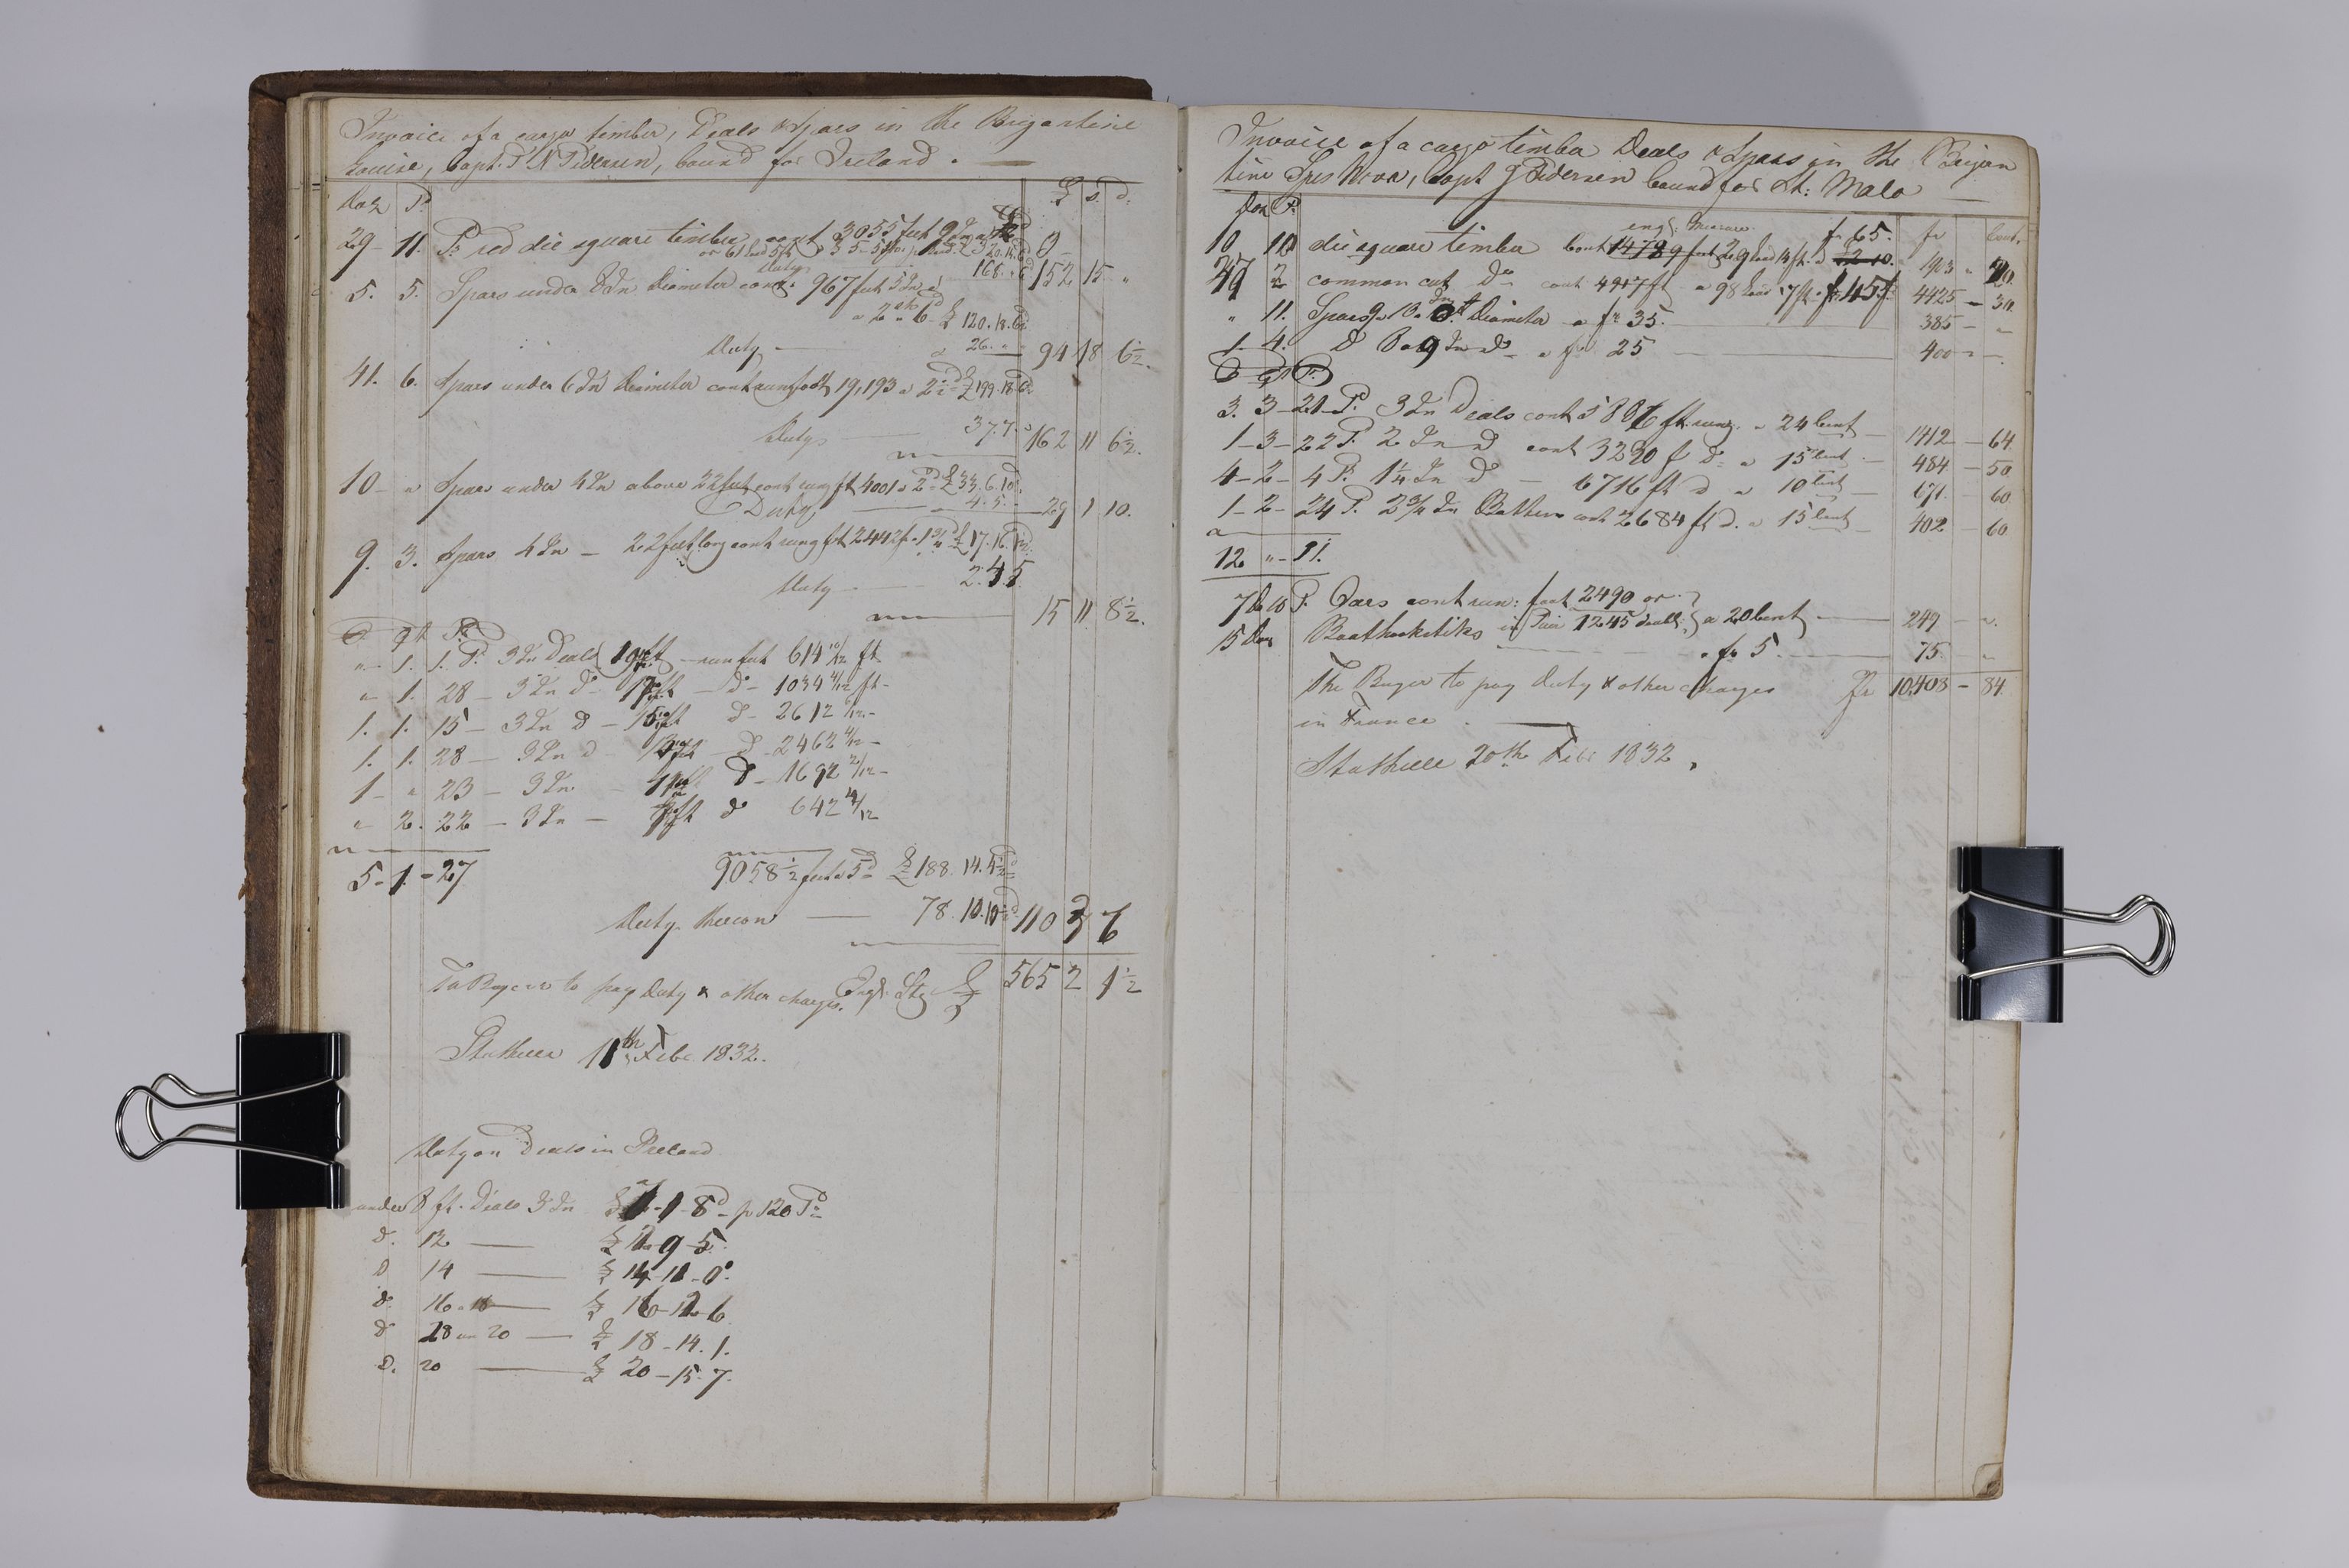 Invoice of a cargo timber, Deals & Spars in the Brigantine
Louise, Capt. P N Pedersen, bound for Ireland.
Doz P. £ s. d.
29- 11. Ps red die square timber cont 3055 feet
or 61 load 5 ft
Duty 168. 152 15 "
5. 5. Spars under 8 In Diameter cont. 967 feet 5 In
a 2 6 £ 120.18.6
Duty 26. " 94 18 6½
41. 6. Spars under 6 In Diameter cont run foot 19,193 a 2½d £ 199.18.6
Duty 37.7. 162 11 6½.
10- " Spars under 4 In above 22 feet cont rung ft 4001 a 2d £ 33.6.10
Duty 4.5. 29 1 10.
9. 3. Spars 4 In - 22 feet long cont rung ft 2442 ft a 1¾ £ 17.16.1½
Duty 2.4.5. 15 11 8½.
C qt P.
" 1. 1. P. 3 In Deals 19 ft run feet 614 10/12 ft
" 1. 28 - 3 In do 17 ft do 1034 4/12 ft-
1. 1. 15 - 3 In do - 15 ft do 2612 6/12-
1. 1. 28 - 3 In do 13 ft do 2462 4/12-
1- " 23 - 3 In 11 ft do 1692 2/12-
" 2. 22 - 3 In - ft do 642 4/12
5-1-27 9058½ feet a 5d £ 188.14.4½
Duty thereon 78.10.10½ 110 3 6
The Buyer to pay Duty & other charges. Engl. Stg £ 565 2 1½
Stathelle 11th Febr. 1832.
Duty on Deals in Ireland
under 8 ft. Deals 3 In £ -1-8d p 120 Ps
do. 12 £ 12-9-5.
do 14 £ 14-11-0.
do. 16 £ 16-12-6.
do 18 a 20 £ 18-14.1.
do. 20 £ 20-15.7.
Invoice of a cargo timber Deals & Spars in the Brigan
tine Spes Nova, Capt J Pedersen bound for St: Malo
Doz P. engl. measure fr 65. fr Cent.
10 10 die square timber Cont 1478 9 feet 29 load 14 ft. a 2.10. 1903 "
49 2 common cut Do cont 4917 ft a 98 load 17 ft a fr 45 4425 - 30.
" 11. Spars 9 a 10 In Diameter a fr 35. 385 - "
1- 4. Do 8 a 9 In do a fr 25 400 - -.
C qt P.
3. 3- 21- P. 3 In Deals cont 5886 ft rung. a 24 Cent 1412 - 64.
1-3-22 P. 2 In do cont 3230 ft do a 15 Cent 484 - 50
4-2-4 P. 1¼ In do - 6716 ft do a 10 Cent 671. - 60
1-2-24 P. 2¾ In Battens cont 2684 ft do. a 15 Cent 402 - 60
12 "- 11.
7 C 10 P. Oars cont run: foot 2490 or
in Pair 1245 a 20 Cent 249 - ".
15 Doz Boathookstiks a fr 5. 75. - "
The Buyer to pay Duty & other charges fr 10,408 - 84.
in France.
Stathelle 20th Febr 1832,